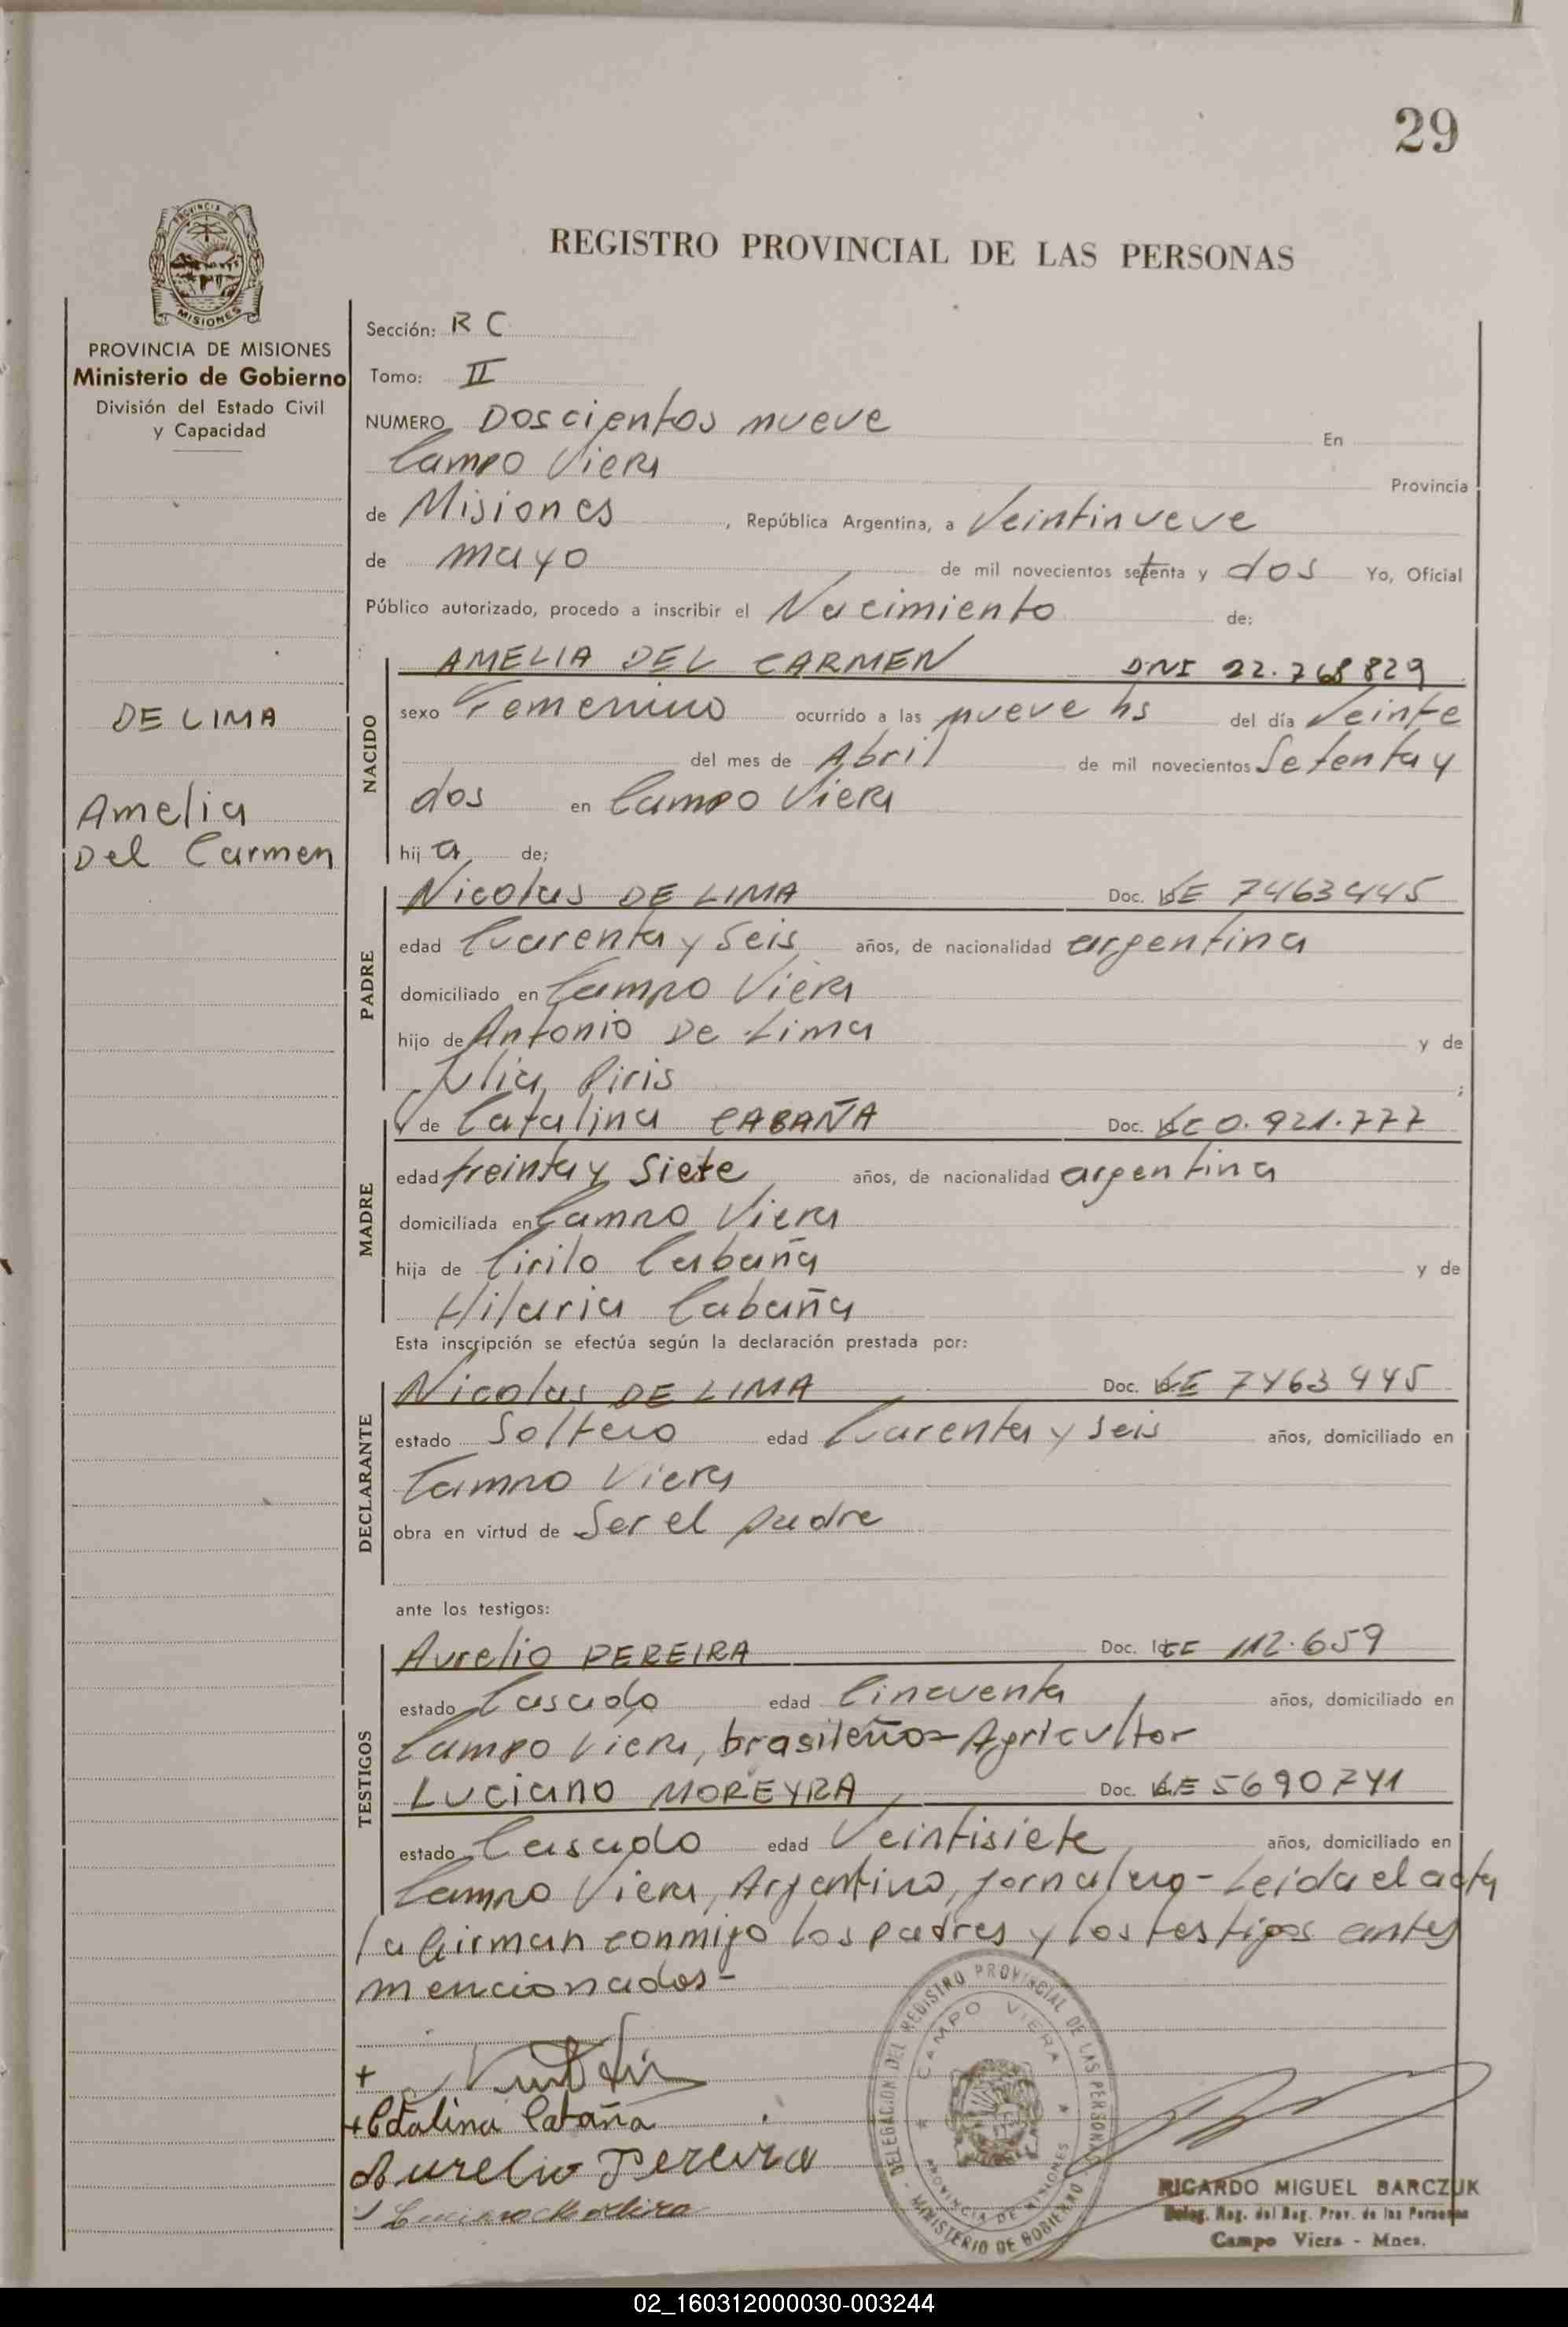 29
PROVINCIA DE
MISIONES
REGISTRO PROVINCIAL DE LAS PERSONAS
PROVINCIA DE MISIONES
Ministerio de Gobierno
División del Estado Civil
y Capacidad
DE LIMA
Amelia
Del Carmen
Sección: R C
Tomo: II
NUMERO Doscientos nueve En
Campo Viera Provincia
de Misiones, República Argentina, a Veintinueve
de mayo de mil novecientos setenta y dos Yo, Oficial
Público autorizado, procedo a inscribir el Nacimiento de:
NACIDO
AMELIA DEL CARMEN DNI 22.768829
sexo Femenino ocurrido a las nueve hs del día Veinte
del mes de Abril de mil novecientos Setenta y
dos en Campo Viera
hija de;
PADRE
Nicolas DE LIMA Doc. LE 7463445
edad Cuarenta y Seis años, de nacionalidad argentina
domiciliado en Campo Viera
hijo de Antonio De Lima y de
Julia Piris ;
MADRE
y de Catalina CABAÑA Doc. LC 0.921.777
edad treinta y Siete años, de nacionalidad argentina
domiciliada en Campo Viera
hija de Cirilo Cabaña y de
Hilaria Cabaña
Esta inscripción se efectúa según la declaración prestada por:
DECLARANTE
Nicolas DE LIMA Doc. LE 7463445
estado Soltero edad Cuarenta y seis años, domiciliado en
Campo Viera
obra en virtud de Ser el padre
ante los testigos:
TESTIGOS
Aurelio PEREIRA Doc. CE 112.659
estado Casado edad Cincuenta años, domiciliado en
Campo Viera, brasileño= Agricultor
Luciano MOREYRA Doc. LE 5690741
estado Casado edad Veintisiete años, domiciliado en
Campo Viera, Argentino, jornalero- Leida el acta
la firman conmigo los padres y los testigos antes
mencionados-
+
+Catalina Cabaña
Aurelio Pereira
DELEGACION DEL REGISTRO PROVINCIAL DE LAS PERSONAS
CAMPO VIERA
PROVINCIA DE MISIONES
- MINISTERIO DE GOBIERNO
RICARDO MIGUEL BARCZUK
Deleg. Reg. del Reg. Prov. de las Personas
Campo Viera - Mnes.
02_160312000030-003244